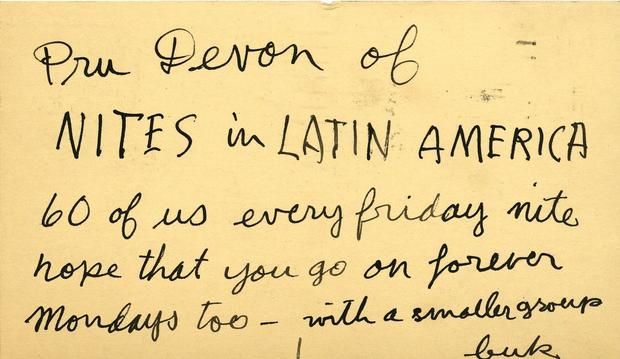 Pru Devon of
NITES in LATIN AMERICA
60 of us every friday nite
hope that you go on forever
Mondays too – with a smaller group
buk